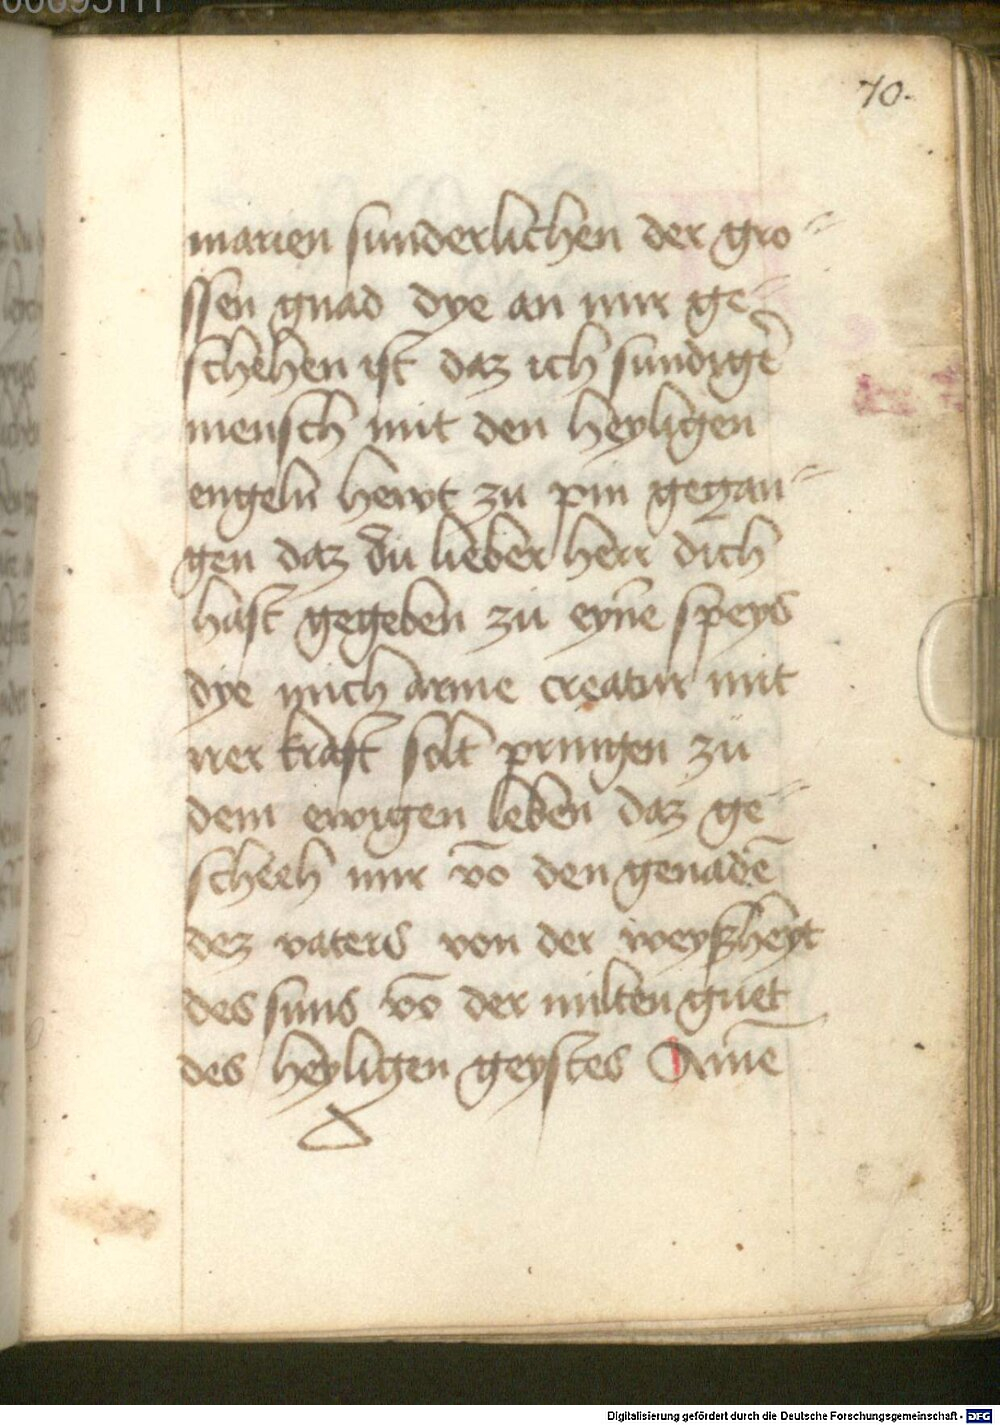 70.
marien sunderlichen der gro⸗
ssen gnad dye an mir ge⸗
schehen ist daz ich sundigē
mensch mit den heyligen
engeln hewt zu pin gegan⸗
gen daz du lieber herr dich
hast gegeben zu eyne speys
dye mich arme creatur mit
irer kraft solt pringen zü
dem ewigen leben daz ge⸗
scheeh mir vō den genadē
dez vaters von der weyßheyt
des suns vō der milten guet
des heyligen geystes Amē
Digitalisierung gefördert durch die Deutsche Forschungsgemeinschaft - DFG